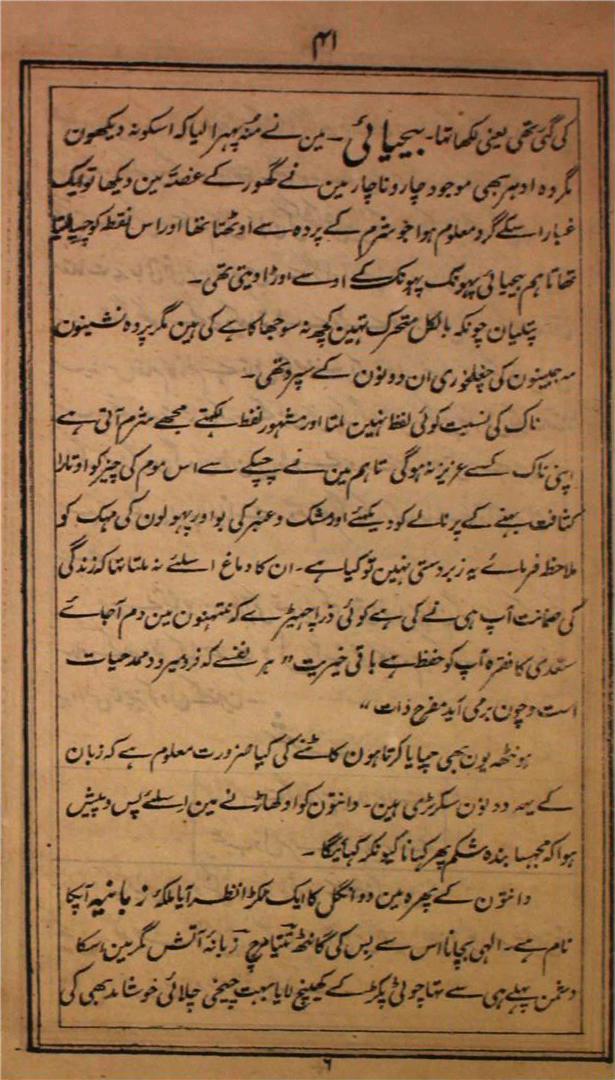 ۴۱
کی گئی تھی یعنی لکھا تھا۔ بیحیائی۔ مین نے منہ پھرا لیا کہ اسکو نہ دیکھون
مگر وہ اودہر بھی موجود چار و ناچار مین نے گھور کے غصّہ مین دیکھا تو ایک
غبار اسکے گرد معلوم ہوا جو شرم کے پردہ سے اوٹھتا تھا اور اس نقط کو چھپا لیتا
تھا تاہم بیحیائی پہونک پہونک کے اوسے اوڑا دیتی تھی۔
پتلیان چونکہ بالکل متحرک تہین کچھ نہ سوجھا کاہے کی ہین مگر پردہ نشینون
مہ جبینون کی چغلخوری ان دونون کے سپرد تھی۔
ناک کی نسبت کوئی لفظ نہین ملتا اور مشہور لفظ لکھتے مجھے شرم آتی ہے
اپنی ناک کسے عزیز نہ ہوگی تاہم مین نے چپکے سے اس موم کی چیز کو اوتارا
کثافت بہنے کے پرنالے کو دیکھئے اور مشک و عنبر کی بو اور پہولون کی مہک کو
ملاحظہ فرمائے یہ زبردستی نہین تو کیا ہے۔ ان کا دماغ اسلئے نہ ملتا تہا کہ زندگی
کی ضمانت آپ ہی نے کی ہے کوئی ذرا چھیڑے کہ نتہنون مین دم آجائے
سعدی کا فقرہ آپ کو حفظ ہے باقی خیریت "ہر نفسے کہ فرو میرود ممد حیات
است و چون برمی آید مفرح ذات"
ہونٹھ یون بھی چبایا کرتا ہون کاٹنے کی کیا ضرورت معلوم ہے کہ زبان
کے یہہ دونون سکرٹری ہین۔ دانتون کو اوکھاڑنے مین اسلئے پس و پیش
ہوا کہ مجہسا بندہ شکم پھر کہانا کیونکر کہائیگا۔
دانتون کے پھرہ مین دو انگل کا ایک ٹکڑا نظر آیا ملکۂ زبانیہ آپکا
نام ہے۔ الہی بچانا اس سے بس کی گانٹھ تتیا مرچ زبانۂ آتش مگر مین اسکا
دشمن پہلے ہی سے تہا چوٹی پکڑ کے کھینچ لایا بہت چیخی چلائی خوشامد بھی کی
۶